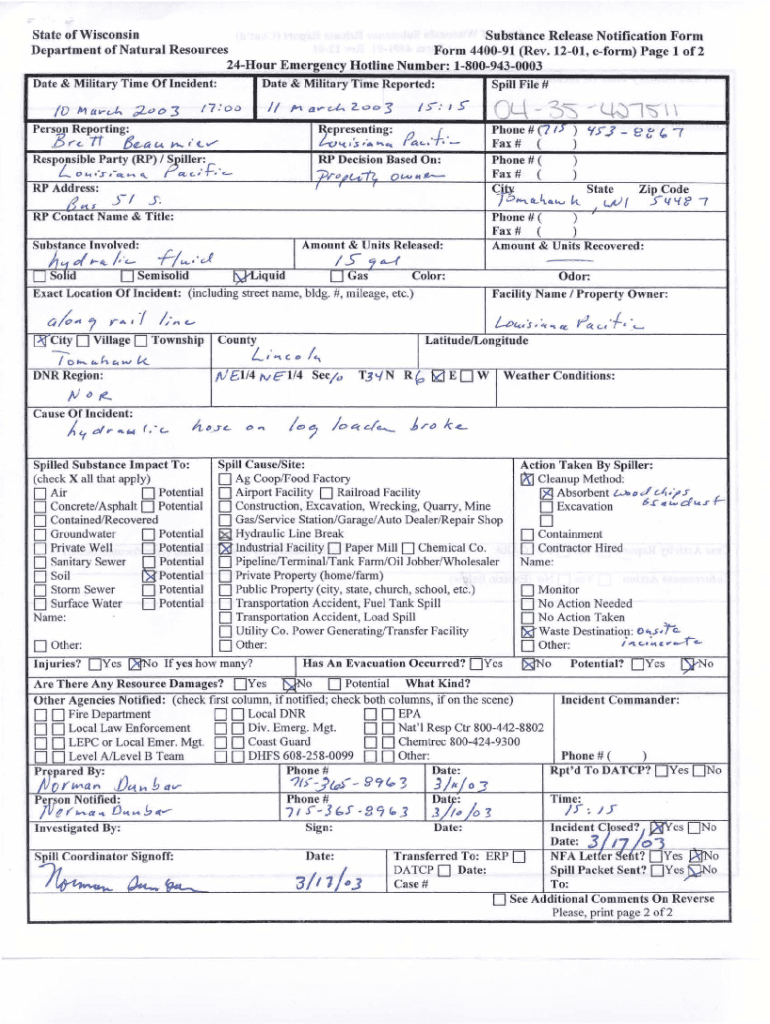 State of Wisconsin Substance Release Notification Form
Department of Natural Resources Form 4400-91 (Rev. 12-01, e-form) Page 1 of 2
24-Hour Emergency Hotline Number: 1-800-943-0003
Date & Military Time Of Incident: Date & Military Time Reported: Spill File #
10 March 2003 17:00 11 March 2003 15:15 04-35-407511
Person Reporting: Representing: Phone # (715) 453-8867
Brett Beaumier Louisiana Pacific Fax # ( )
Responsible Party (RP) / Spiller: RP Decision Based On: Phone # ( )
Louisiana Pacific Property owner Fax # ( )
RP Address: City State Zip Code
Bus 51 S. Tomahawk, WI 54487
RP Contact Name & Title: Phone # ( )
Fax # ( )
Substance Involved: Amount & Units Released: Amount & Units Recovered:
hydralic fluid 15 gal —
Solid Semisolid Liquid Gas Color: Odor:
Exact Location Of Incident: (including street name, bldg. #, mileage, etc.) Facility Name / Property Owner:
along rail line Louisiana Pacific
City Village Township County Latitude/Longitude
Tomahawk Lincoln
DNR Region: NE1/4 NE1/4 Sec 10 T34N R6 E W Weather Conditions:
NOR
Cause Of Incident:
hydraulic hose on log loader broke
Spilled Substance Impact To: Spill Cause/Site: Action Taken By Spiller:
(check X all that apply) Ag Coop/Food Factory Cleanup Method:
Air Potential Airport Facility Railroad Facility Absorbent wood chips
Concrete/Asphalt Potential Construction, Excavation, Wrecking, Quarry, Mine Excavation & sawdust
Contained/Recovered Gas/Service Station/Garage/Auto Dealer/Repair Shop
Groundwater Potential Hydraulic Line Break Containment
Private Well Potential Industrial Facility Paper Mill Chemical Co. Contractor Hired
Sanitary Sewer Potential Pipeline/Terminal/Tank Farm/Oil Jobber/Wholesaler Name:
Soil Potential Private Property (home/farm)
Storm Sewer Potential Public Property (city, state, church, school, etc.) Monitor
Surface Water Potential Transportation Accident, Fuel Tank Spill No Action Needed
Name: Transportation Accident, Load Spill No Action Taken
Utility Co. Power Generating/Transfer Facility Waste Destination: onsite
Other: Other: Other: incinerate
Injuries? Yes No If yes how many? Has An Evacuation Occurred? Yes No Potential? Yes No
Are There Any Resource Damages? Yes No Potential What Kind?
Other Agencies Notified: (check first column, if notified; check both columns, if on the scene) Incident Commander:
Fire Department Local DNR EPA
Local Law Enforcement Div. Emerg. Mgt. Nat'l Resp Ctr 800-442-8802
LEPC or Local Emer. Mgt. Coast Guard Chemtrec 800-424-9300
Level A/Level B Team DHFS 608-258-0099 Other: Phone # ( )
Prepared By: Phone # Date: Rpt'd To DATCP? Yes No
Norman Dunbar 715-365-8963 3/11/03
Person Notified: Phone # Date: Time:
Norman Dunbar 715-365-8963 3/10/03 15:15
Investigated By: Sign: Date: Incident Closed? Yes No
Date: 3/17/03
Spill Coordinator Signoff: Date: Transferred To: ERP NFA Letter Sent? Yes No
DATCP Date: Spill Packet Sent? Yes No
Norman Dunbar 3/17/03 Case # To:
See Additional Comments On Reverse
Please, print page 2 of 2